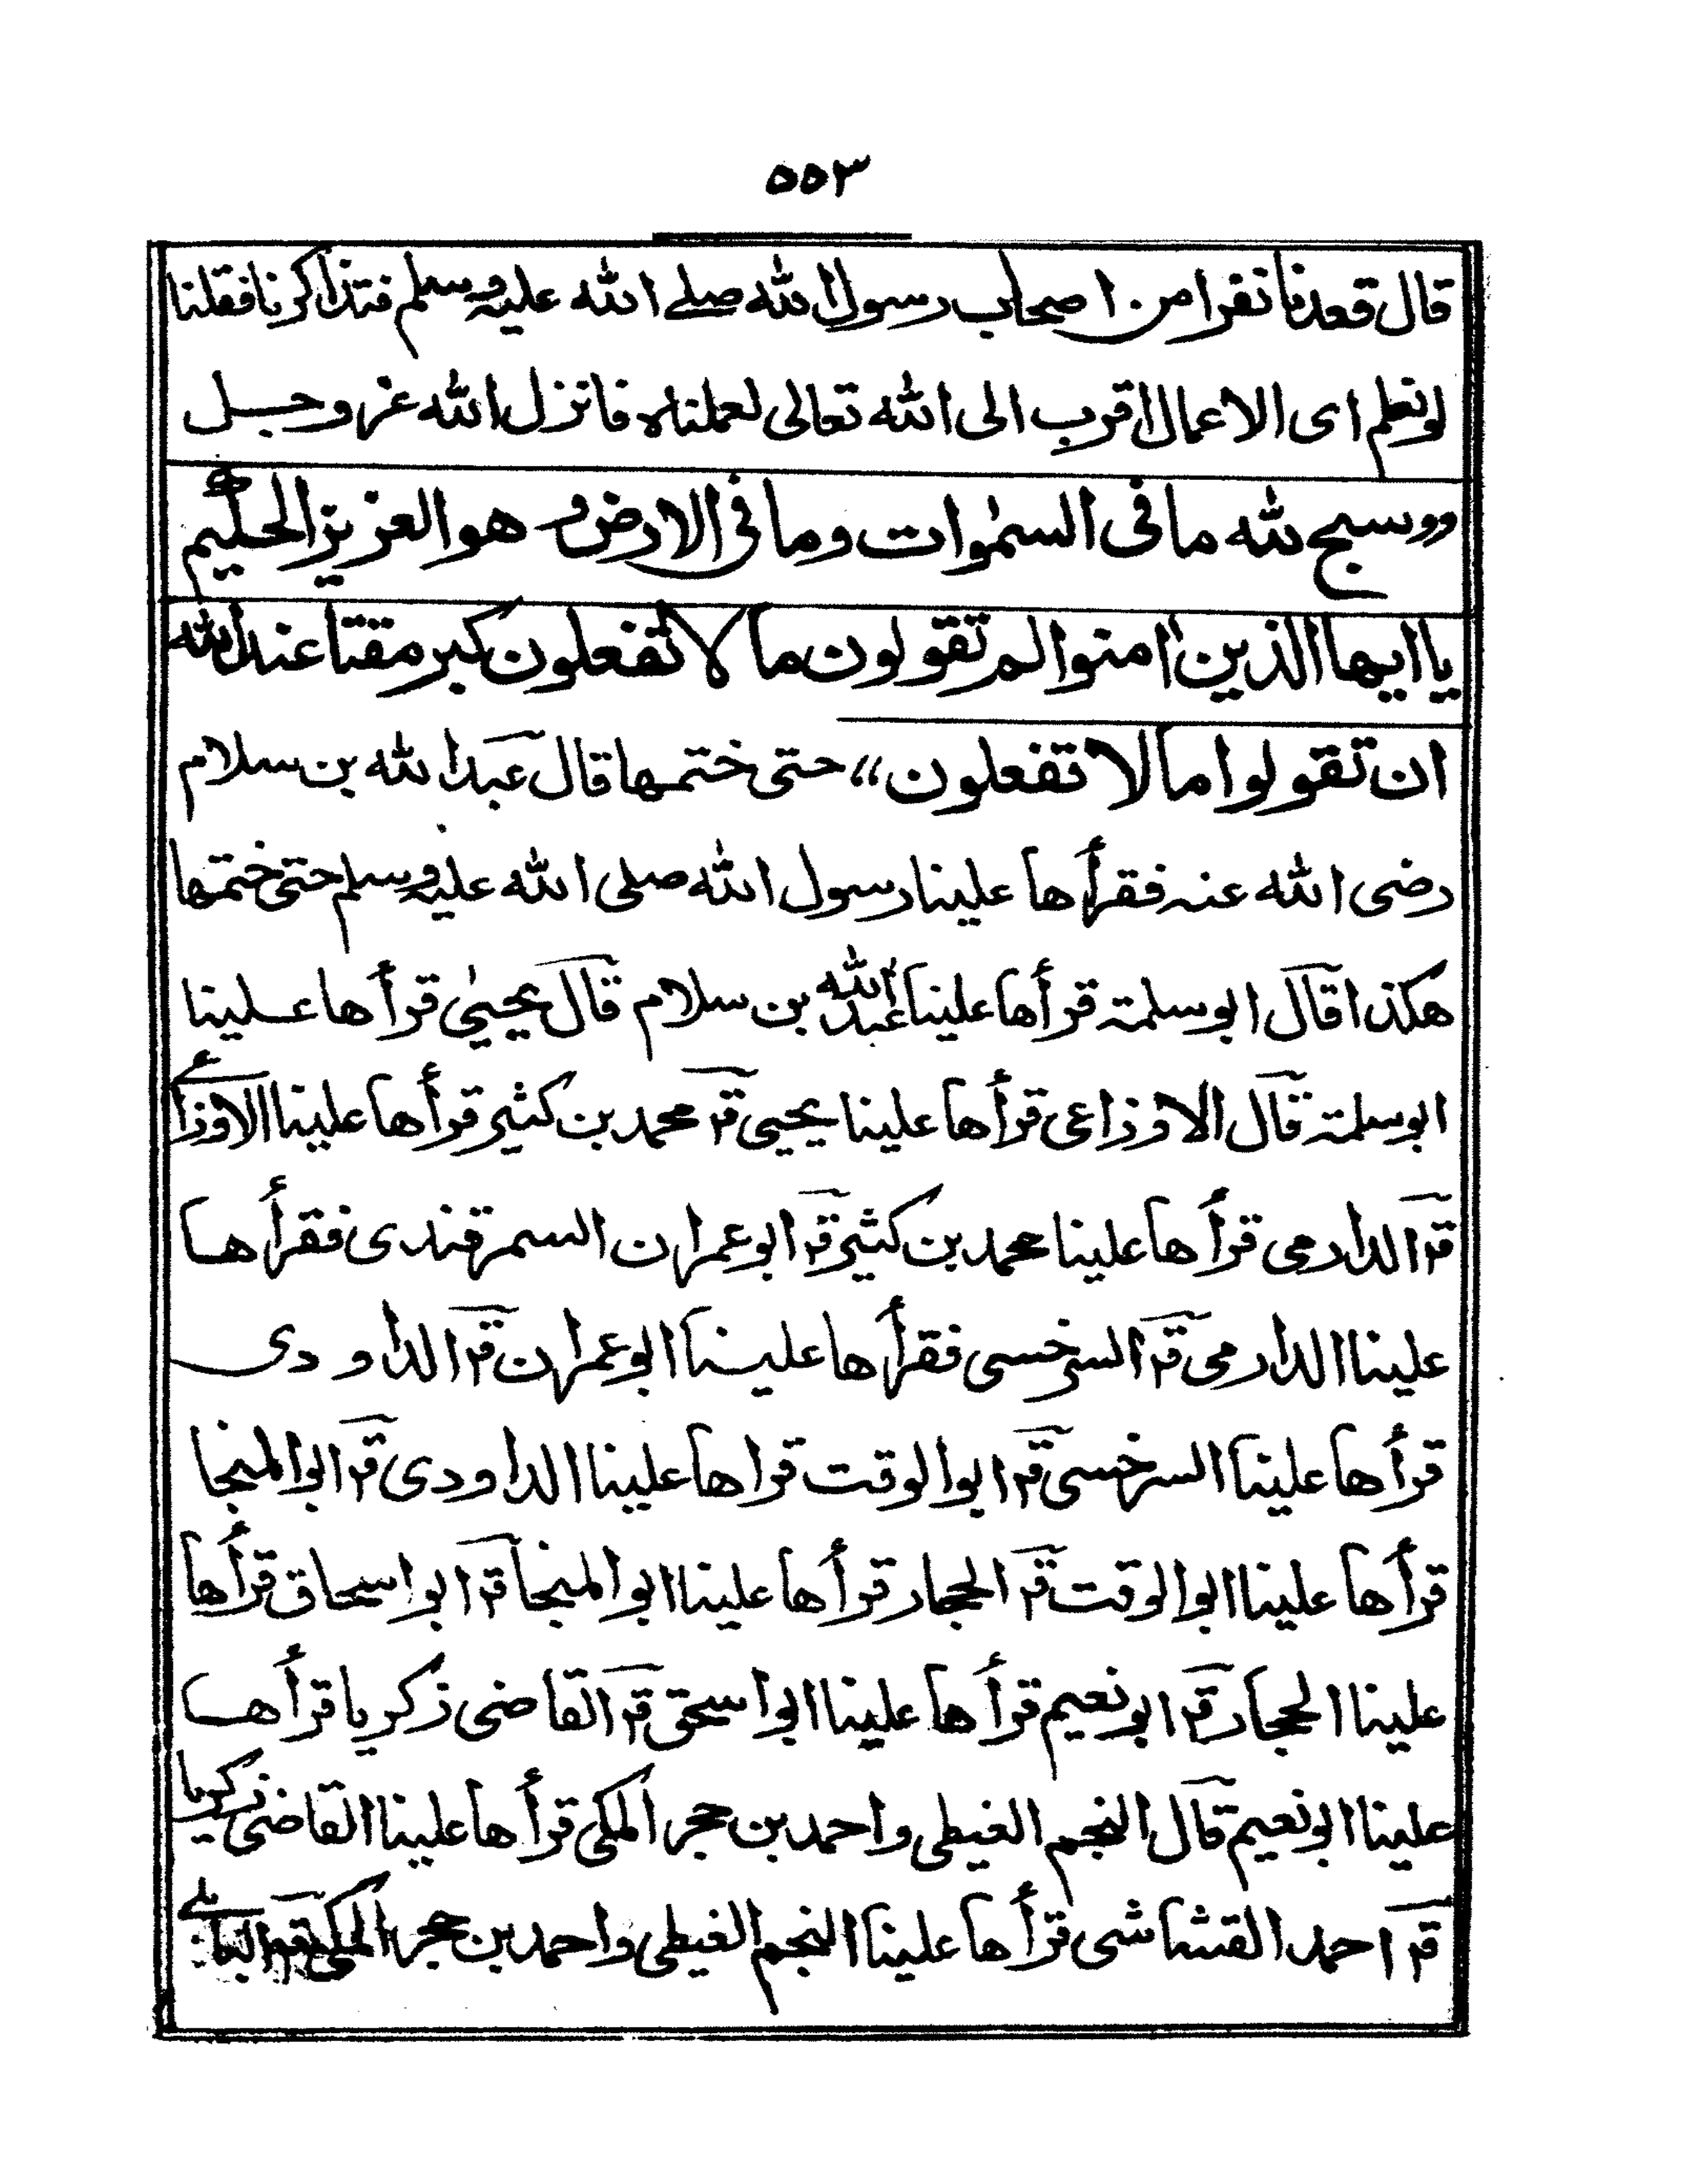 ٥٥٣
قال قعدنا نفرا من اصحاب رسول الله صلے الله عليه وسلم فتذاكرنا فقلنا
لو نعلم اى الاعمال اقرب الى الله تعالى لعملناه فانزل الله عز وجل
وو سبح لله ما فى السمٰوات وما فى الارض وهو العزيز الحكيم
يا ايها الذين اٰمنوا لم تقولون ما لا تفعلون كبر مقتا عند الله
ان تقولوا ما لا تفعلون،، حتى ختمها قال عبد الله بن سلام
رضى الله عنه فقرأها علينا رسول الله صلى الله عليه وسلم حتى ختمها
هكذا قال ابو سلمة قرأها علينا عبد الله بن سلام قال يحيىٰ قرأها علينا
ابو سلمة قال الاوزاعى قرأها علينا يحيى قۤ محمد بن كثير قرأها علينا الاوزاعے
قۤ الدارمى قرأها علينا محمد بن كثير قۤ ابو عمران السمرقندى فقرأها
علينا الدارمى قۤ السرخسى فقرأها علينا ابو عمران قۤ الداودى
قرأها علينا السرخسى قۤ ابو الوقت قراها علينا الداودى قۤ ابو المنجا
قرأها علينا ابو الوقت قۤ الحجار قرأها علينا ابو المنجا قۤ ابو اسحاق قرأها
علينا الحجار قۤ ابو نعيم قرأها علينا ابو اسحق قۤ القاضى زكريا قرأها
علينا ابو نعيم قال النجم الغيطى واحمد بن حجر المكى قرأها علينا القاضى زكريا
قۤ احمد القشاشى قرأها علينا النجم الغيطى واحمد بن حجر المكى